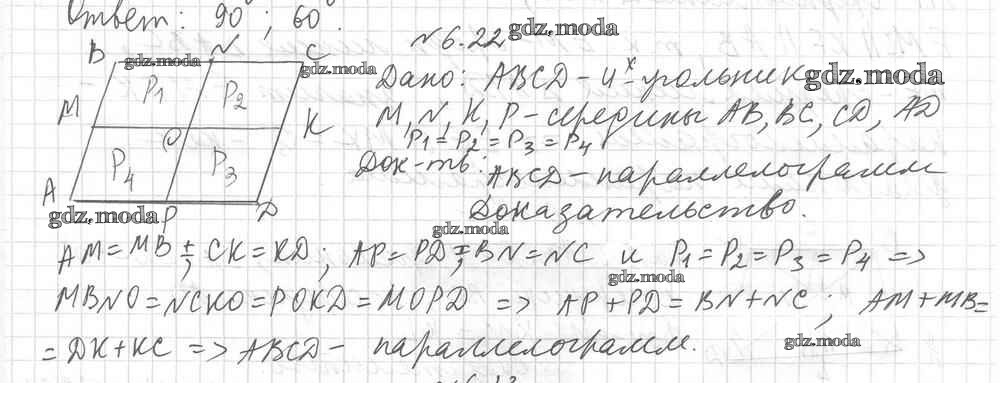 Ответ: 90°; 60°.
№6.22
gdz.moda
B N C
gdz.moda
gdz.moda
Дано: ABCD - 4-х угольник
gdz.moda
P1 P2
M K
M, N, K, P - середины AB, BC, CD, AD
O
P1 = P2 = P3 = P4
P4 P3
Док-ть: ABCD - параллелограмм
A P D
gdz.moda
Доказательство.
gdz.moda
AM = MB; CK = KD; AP = PD; BN = NC и P1 = P2 = P3 = P4 =>
gdz.moda
MBNO = NCKO = POKD = MOPD => AP + PD = BN + NC; AM + MB =
= DK + KC => ABCD - параллелограмм.
gdz.moda